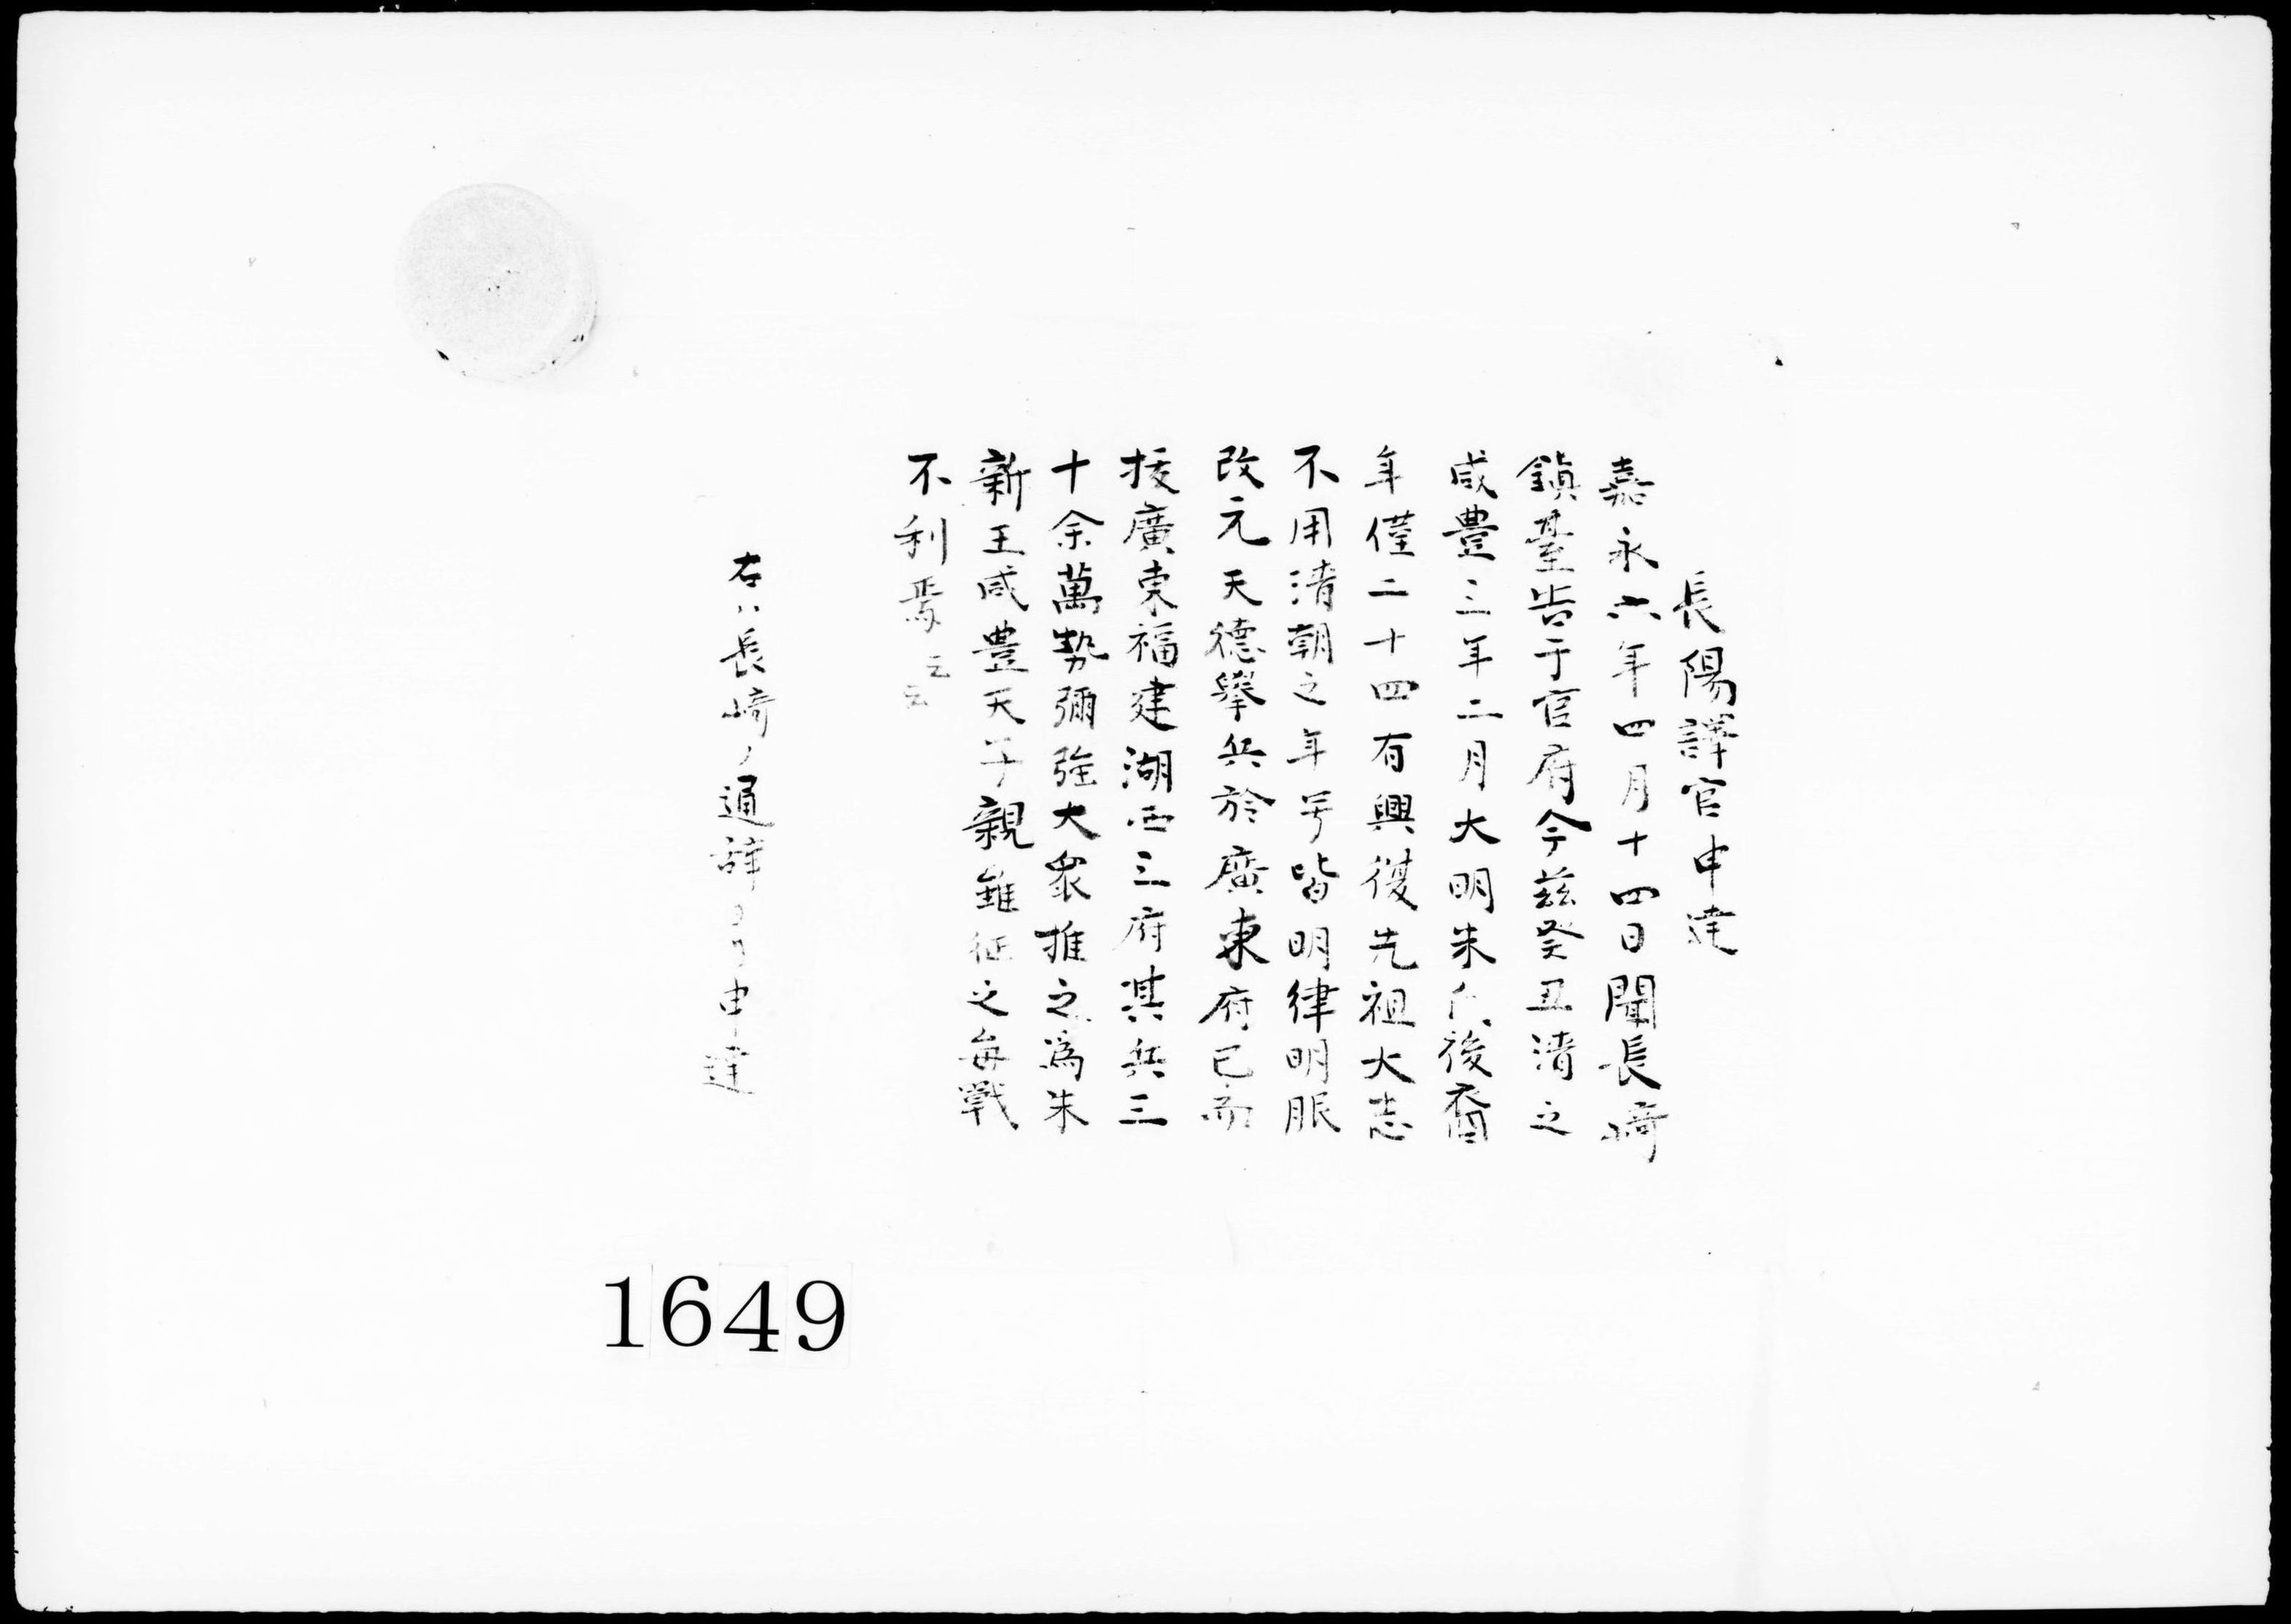 長陽譯官申達
嘉永六年四月十四日聞長崎
鎮臺告于官府今茲癸丑清之
咸豊三年二月大明朱氏後裔
年僅二十四有興復先祖大志
不用清朝之年号皆明律明服
改元天德擧兵於廣東府已而
拔廣東福建湖西三府其兵三
十余萬勢彌强大衆推之為朱
新王咸豊天子親雖征之毎戰
不利焉云云
右ハ長崎ノ通辞ヨリ申達
1649